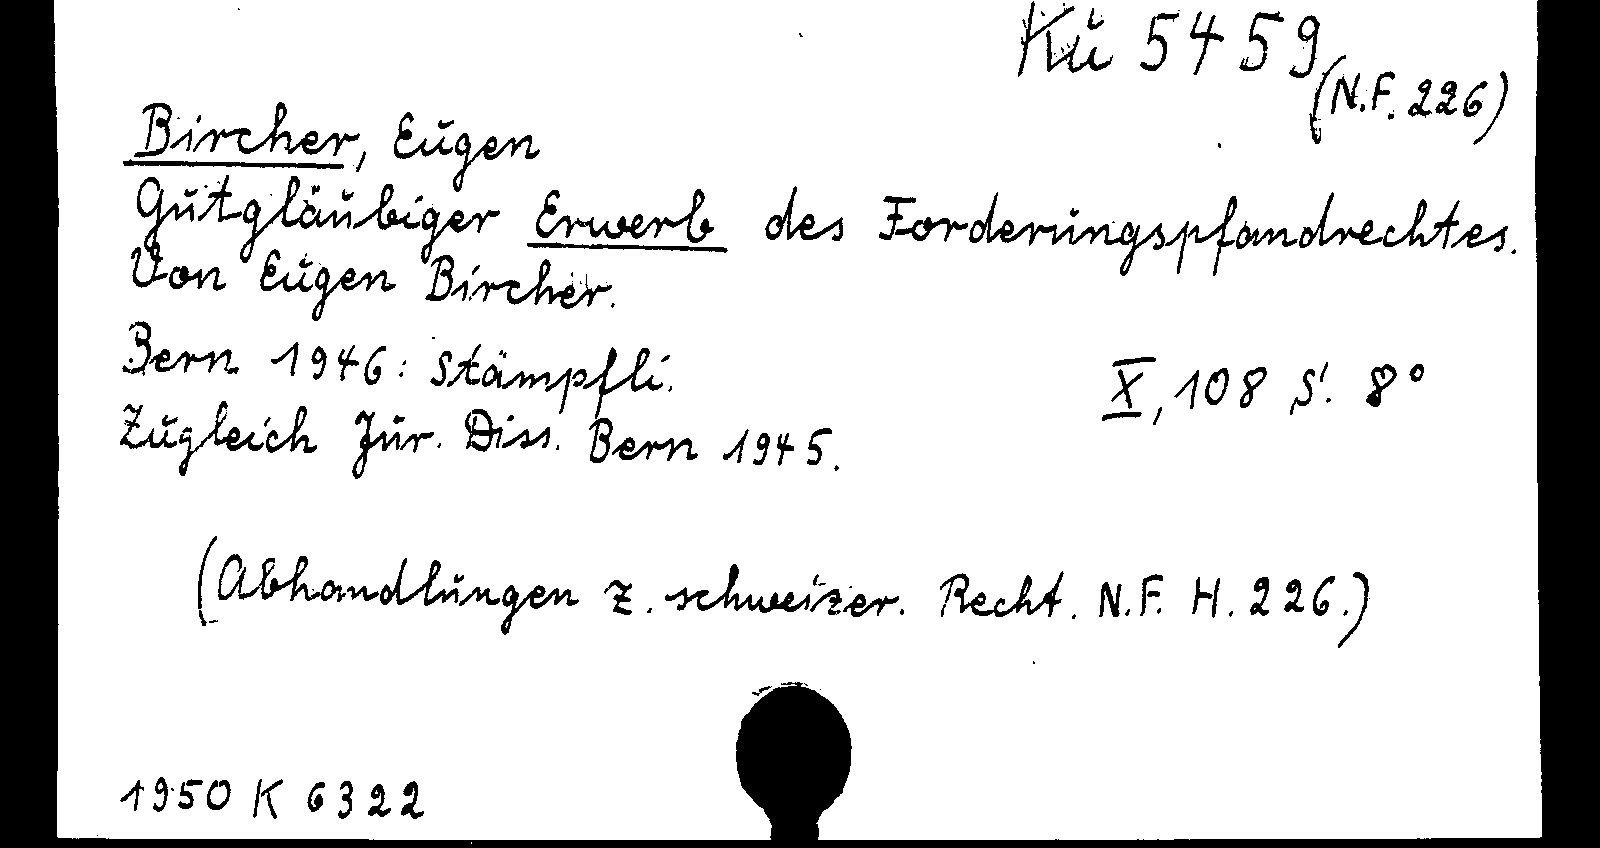 Ku 5459
(N.F. 226)
Bircher, Eugen
Gutgläubiger Erwerb des Forderungspfandrechtes.
Von Eugen Bircher.
Bern 1946: Stämpfli.
X, 108 S. 8°
Zugleich Jur. Diss. Bern 1945.
(Abhandlungen z. schweizer. Recht. N.F. H. 226.)
1950 K 6322